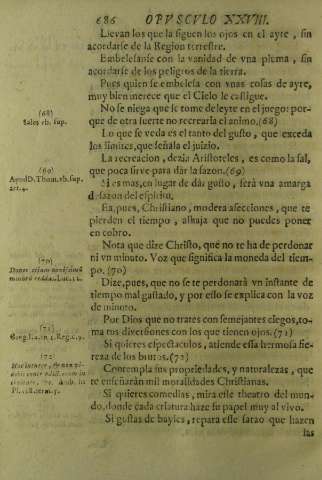 686 OPVSCVLO XXVIII.
Llevan los que la siguen los ojos en el ayre, sin
acordarse de la Region terrestre.
Embelesanse con la vanidad de vna pluma, sin
acordarse de los peligros de la tierra.
Pues quien se embelesa con vnas cosas de ayre,
muy bien merece que el Cielo le castigue.
No se niega que se tome deleyte en el juego: por-
que de otra suerte no recrearìa el animo. (68)
(68)
Sales vb. sup.
Lo que se veda es el tanto del gusto, que exceda
los limites, que señala el juizio.
La recreacion, dezia Aristoteles, es como la sal,
que poca sirve para dàr la sazon. (69)
(69)
Apud D. Thom. vb. sup.
art. 4.
Si es mas, en lugar de dàr gusto, serà vna amarga
desazon del espiritu.
Ea, pues, Christiano, modera afecciones, que te
pierden el tiempo, alhaja que no puedes poner
en cobro.
Nota que dize Christo, que no te ha de perdonar
ni vn minuto. Voz que significa la moneda del tiem-
po. (70)
(70)
Donec etiam novissimum
minutũ reddas. Luc. 12.
Dize, pues, que no se te perdonarà vn instante de
tiempo mal gastado, y por esso se explica con la voz
de minuto.
Por Dios que no trates con semejantes ciegos, to-
ma tus diversiones con los que tienen ojos. (71)
(71)
Greg. l. 2. in 1. Reg. c. 9.
Si quieres espectaculos, atiende essa hermosa fie-
reza de los brutos. (72)
(72)
Contempla sus propriedades, y naturalezas, que
te enseñaràn mil moralidades Christianas.
Si quieres comedias, mira esse theatro del mun-
do, donde cada criatura haze su papel muy al vivo.
Si gustas de bayles, repara esse sarao que hazen
las